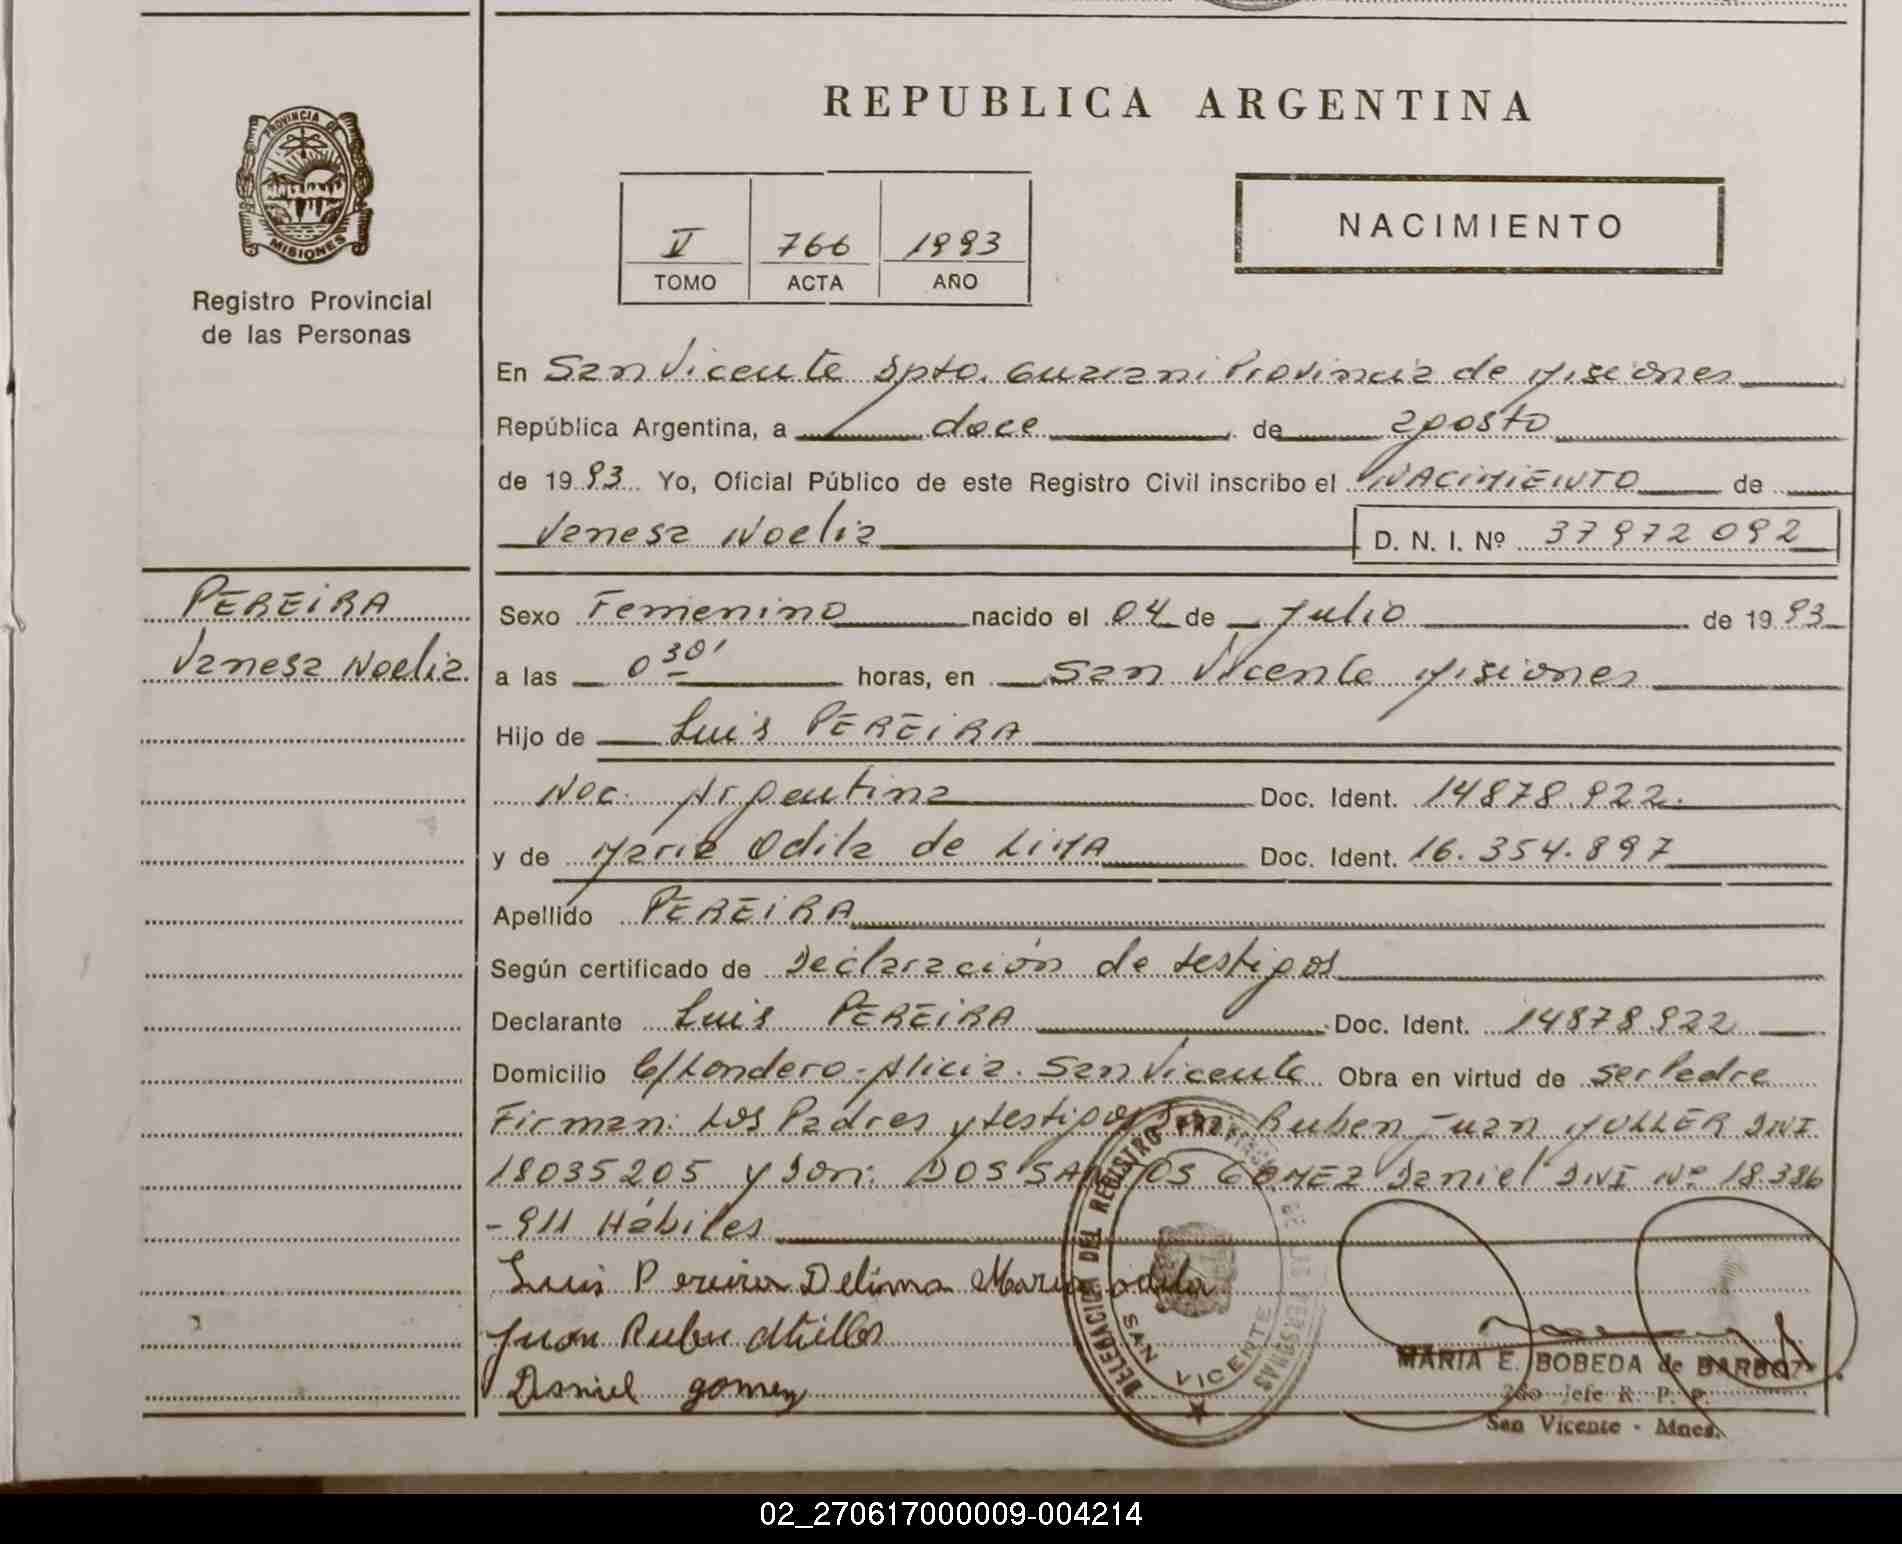 REPUBLICA ARGENTINA
PROVINCIA DE
MISIONES
Registro Provincial
de las Personas
V 766 1993
TOMO ACTA AÑO
NACIMIENTO
En San Vicente Dpto. Guarani Provincia de Misiones
República Argentina, a doce de agosto
de 1993 Yo, Oficial Público de este Registro Civil inscribo el NACIMIENTO de
Vanesa Noelia D. N. I. Nº 37972092
PEREIRA
Vanesa Noelia
Sexo Femenino nacido el 04 de Julio de 1993
a las 0 30' horas, en San Vicente Misiones
Hijo de Luis PEREIRA
Nac. Argentina Doc. Ident. 14878.922.
y de Maria Odila de LIMA Doc. Ident. 16.354.897
Apellido PEREIRA
Según certificado de Declaración de testigos
Declarante Luis PEREIRA Doc. Ident. 14878.922
Domicilio C/Londero-Alicia. San Vicente Obra en virtud de ser Padre
Firman: Los Padres y testigos Don: Ruben Juan MULLER DNI
18035205 y Don: DOS SANTOS GOMEZ Daniel DNI Nº 18.386
-911 Hábiles
Luis Pereira Delima Maria odila
Juan Ruben
Daniel gomez
DELEGACION DEL REGISTRO PROVINCIAL DE LAS PERSONAS
SAN VICENTE
MARIA E. BOBEDA de BARBOZA
2do Jefe R. P. P.
San Vicente - Mnes.
02_270617000009-004214